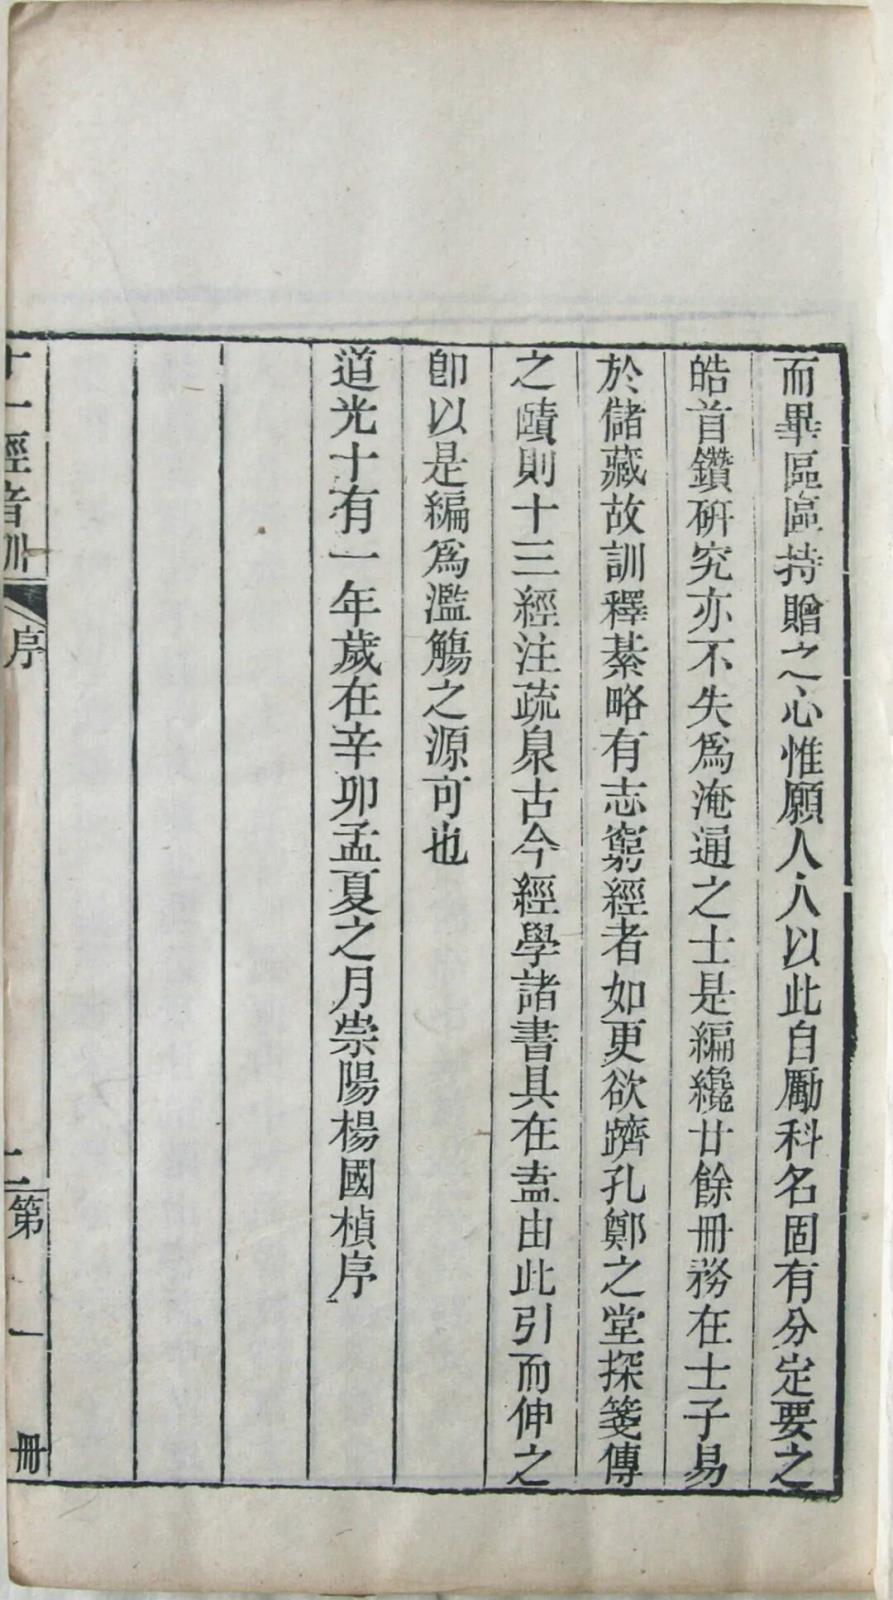 而畢區區持贈之心惟願人人以此自勵科名固有分定要之
皓首鑽硏究亦不失爲淹通之士是編纔廿餘冊務在士子易
於儲藏故訓釋綦略有志窮經者如更欲躋孔鄭之堂探箋傳
之賾則十三經注疏泉古今經學諸書具在盍由此引而伸之
卽以是編爲濫觴之源可也
道光十有一年歲在辛卯孟夏之月崇陽楊國楨序
十一經音訓
序
二
第一冊